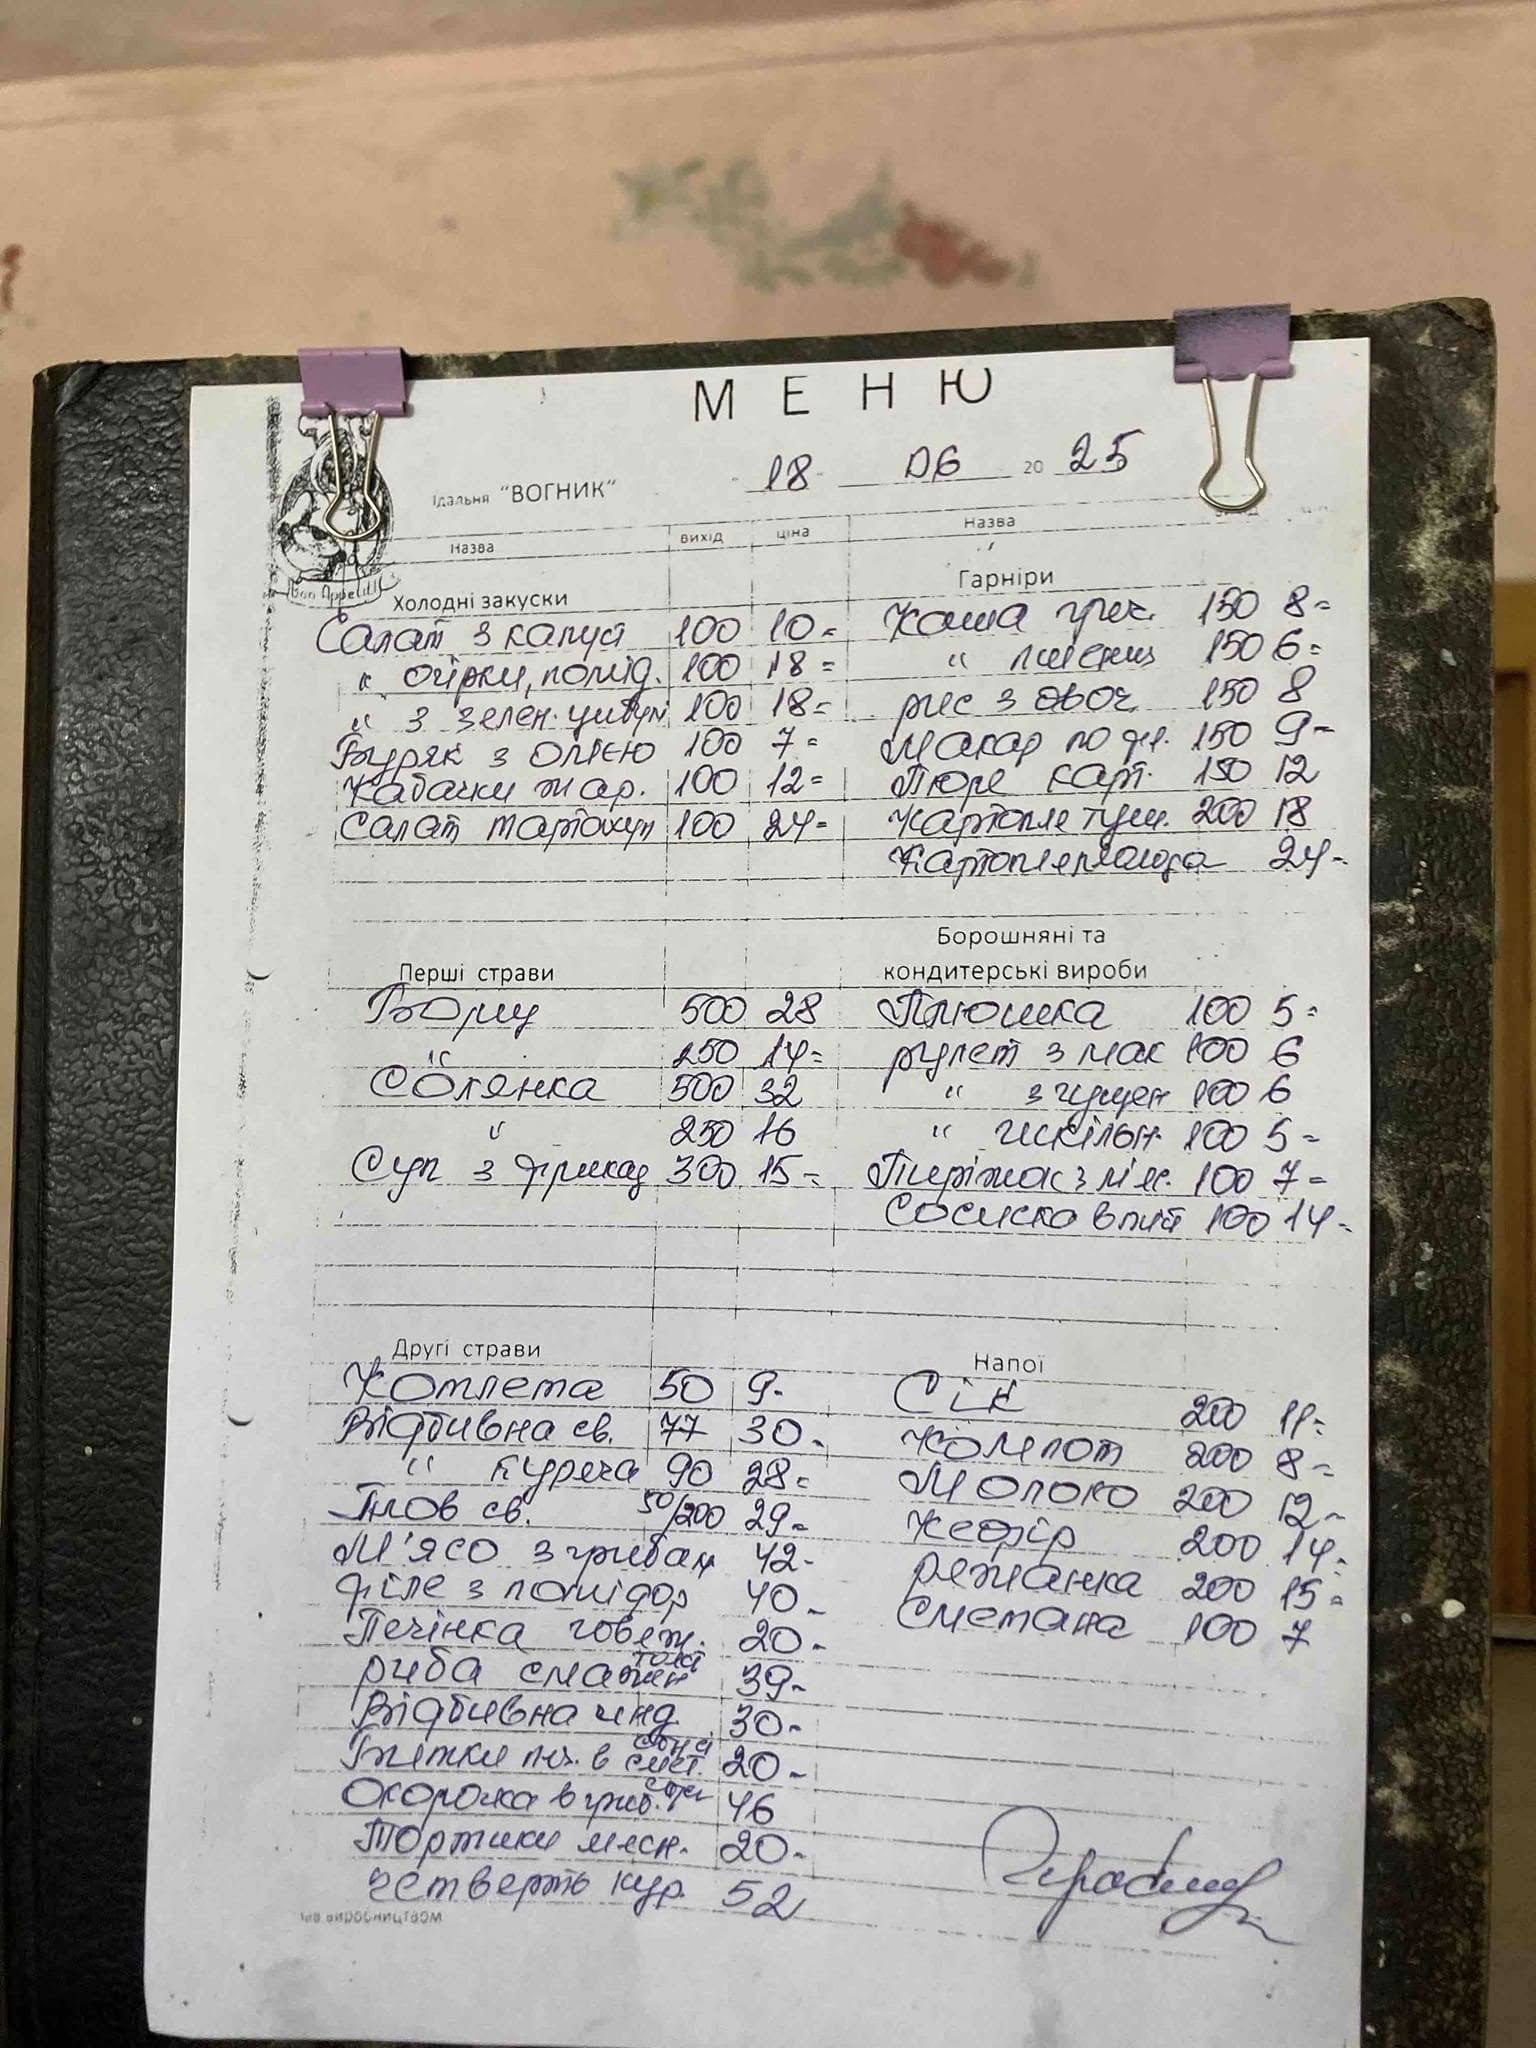 МЕНЮ
Їдальня "ВОГНИК" 18 06 20 25
Назва вихід ціна
Холодні закуски
Салат з капуст 100 10=
" огірки, помід. 100 18=
" з зелен. цибул 100 18=
Буряк з олією 100 7=
Кабачки жар. 100 12=
Салат 100 24=
Перші страви
Борщ 500 28
" 250 14=
Солянка 500 32
" 250 16
Суп з фрикад 300 15=
Другі страви
Котлета 50 9-
Відбивна св. 77 30-
" куряча 90 28=
Плов св. 50/200 29=
М'ясо з грибам 42-
філе з помідор 40-
Печінка говяж. 20-
риба смажен 39-
Відбивна инд 30-
в смет. 20-
в гриб. 46
мясн. 20-
четверть кур. 52
Зав виробництвом
Назва
Гарніри
Каша греч. 150 8=
" пшенич 150 6=
рис з овоч 150 8
Макар 150 9=
Пюре карт. 150 12
Картопля туш. 200 18
Картопля молода 24-
Борошняні та
кондитерські вироби
Плюшка 100 5=
рулет з мак 100 6
" 100 6
" 100 5=
Пиріжок з м'яс. 100 7=
Сосиска в 100 14-
Напої
Сік 200 11=
Компот 200 8=
Молоко 200 12-
Кефір 200 14=
ряжанка 200 15=
Сметана 100 7
Bon Appetit!